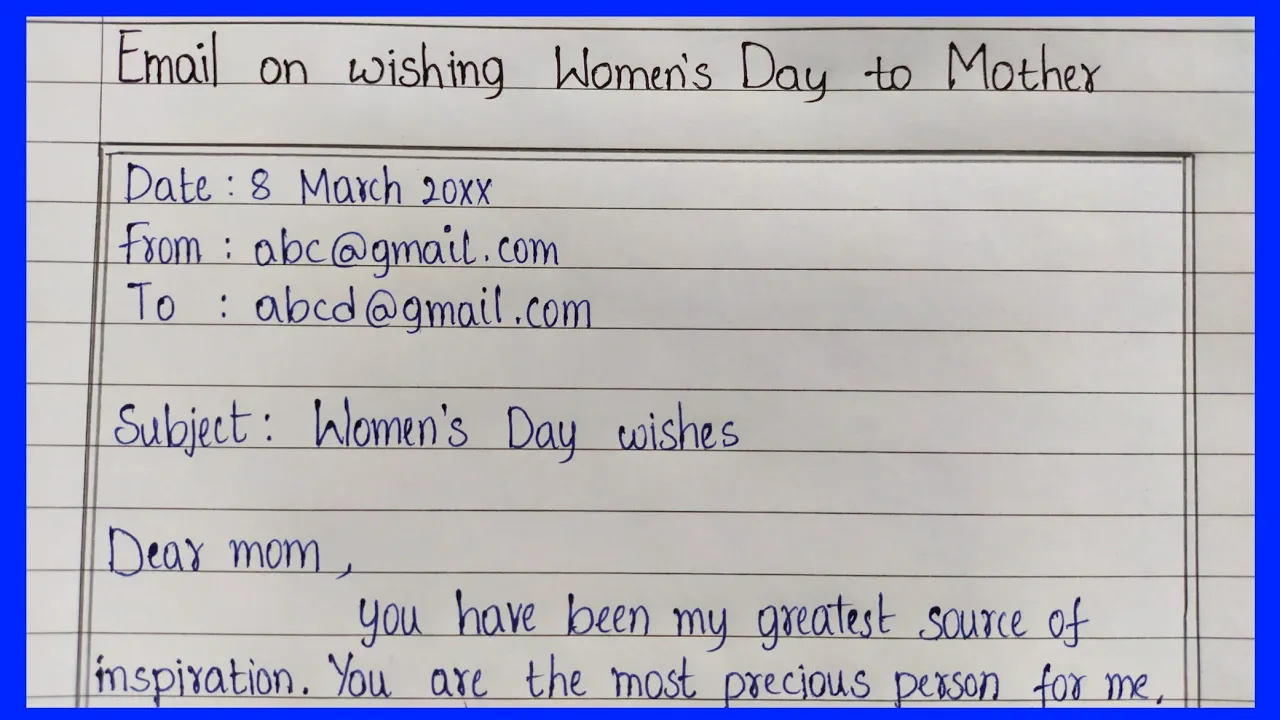 Email on wishing Women's Day to Mother
Date : 8 March 20xx
From : abc@gmail.com
To : abcd@gmail.com
Subject : Women's Day wishes
Dear mom ,
you have been my greatest source of
inspiration. You are the most precious person for me.